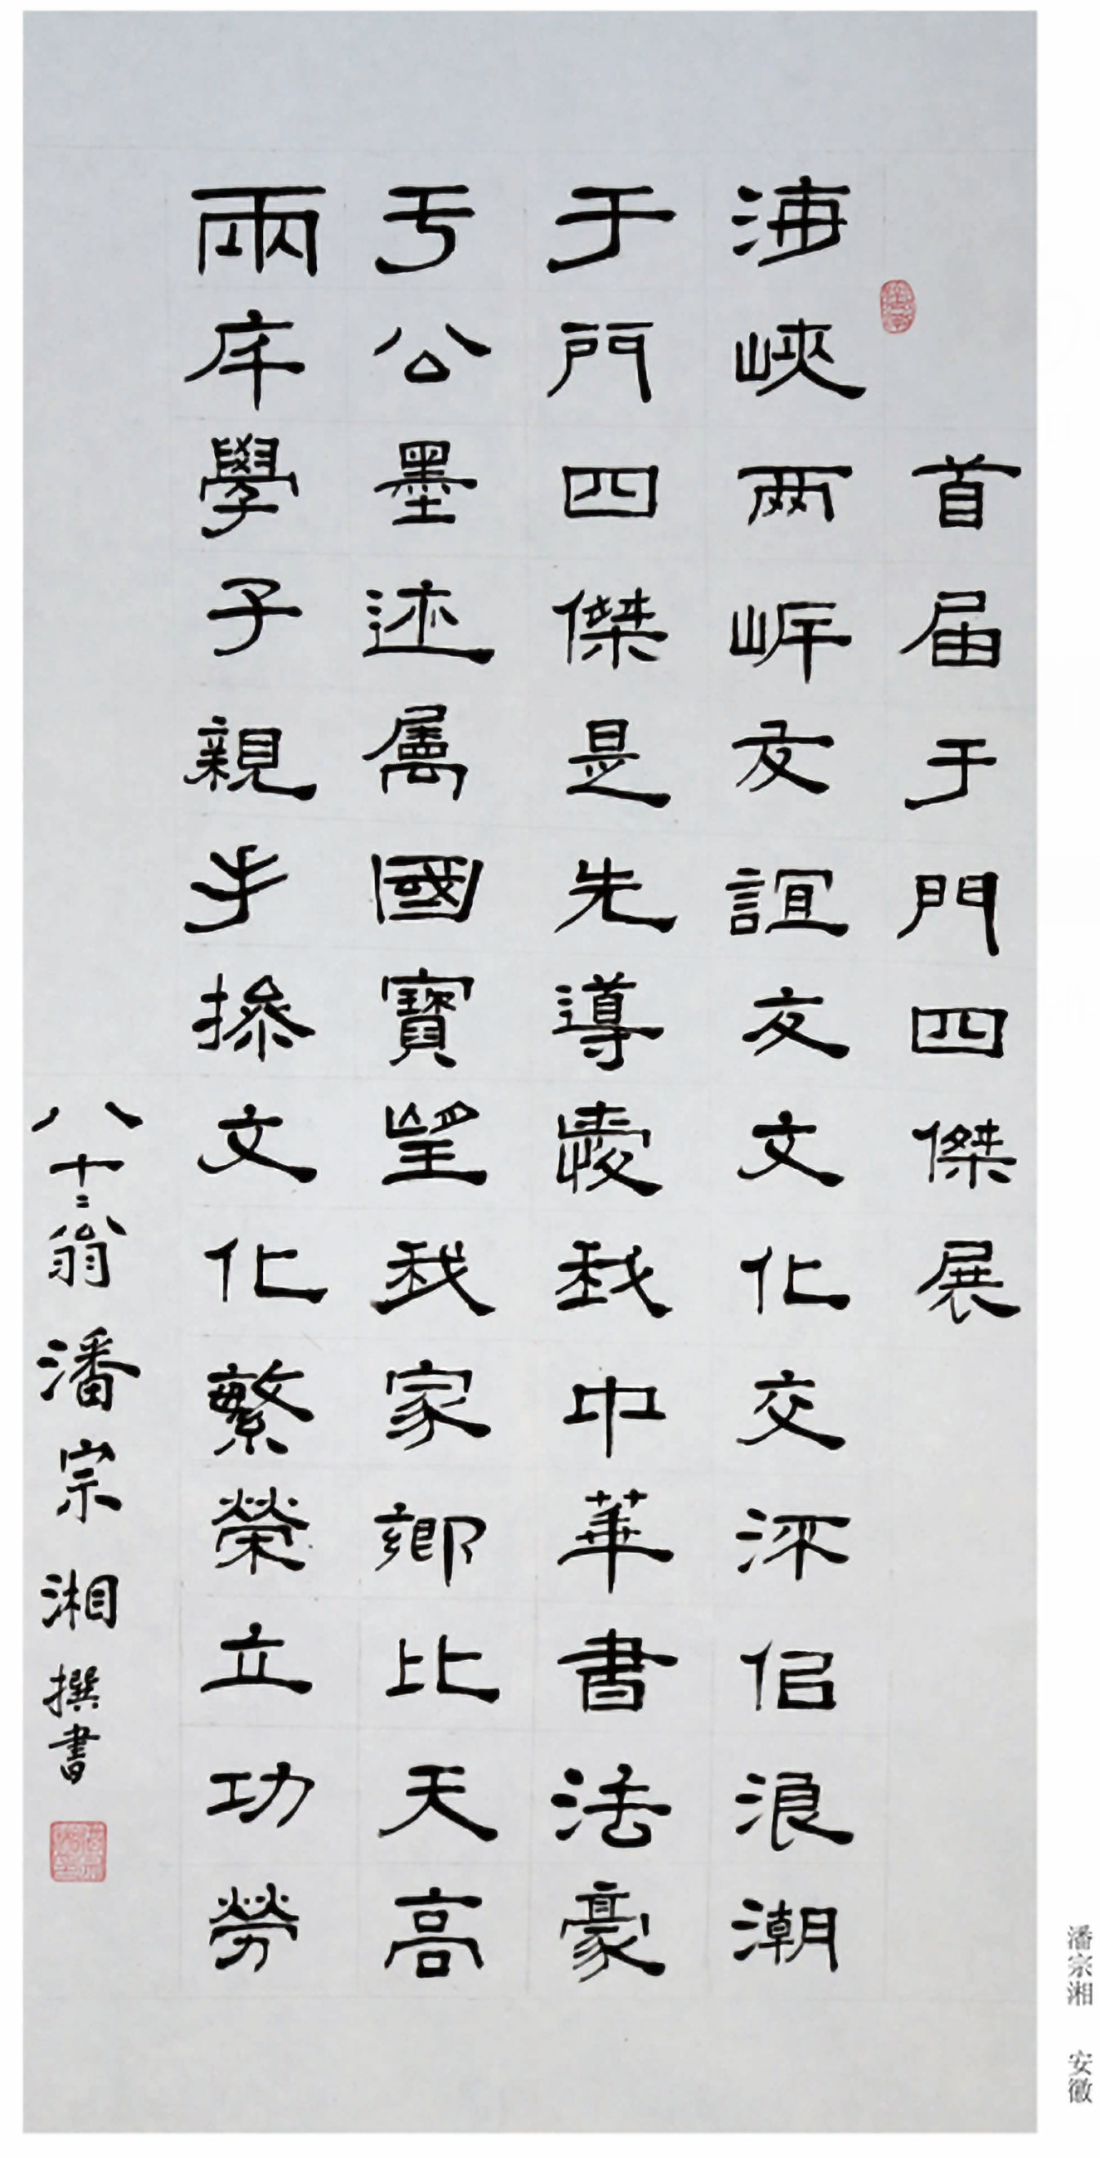 首届于門四傑展
海峽两岸友誼友文化交流似浪潮
于門四傑是先導慶我中華書法豪
于公墨迹屬國寶望我家鄉比天高
兩岸學子親手摻文化繁榮立功勞
八十二翁潘宗湘撰書
潘宗湘 安徽